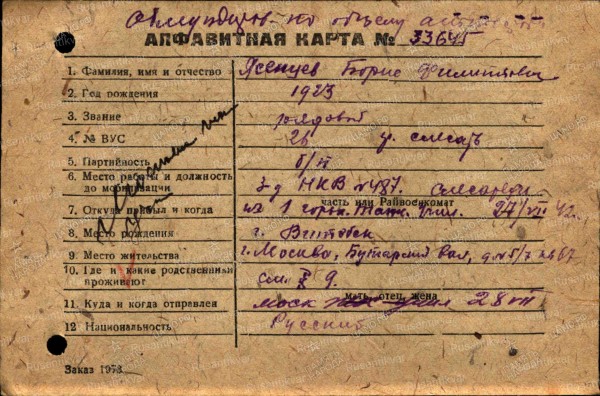 Обмундиров. по общему
АЛФАВИТНАЯ КАРТА № 33645
1. Фамилия, имя и отчество Ясенцев Борис Филиппович
2. Год рождения 1923
3. Звание рядовой
4. № ВУС 26 у. слесарь
5. Партийность б/п
6. Место работы и должность до мобилизации З-д НКВ №487. слесарем
часть или Райвоенкомат
7. Откуда прибыл и когда из 1 горьк. Танк. учил. 27/VII 42 г.
8. Место рождения г. Витебск
9. Место жительства г. Москва, Бутырский вал, д. № 5/7 кв 67
10. Где и какие родственники проживают см. § 9.
мать, отец, жена
11. Куда и когда отправлен 28 VII
12 Национальность Русский
Заказ 1973